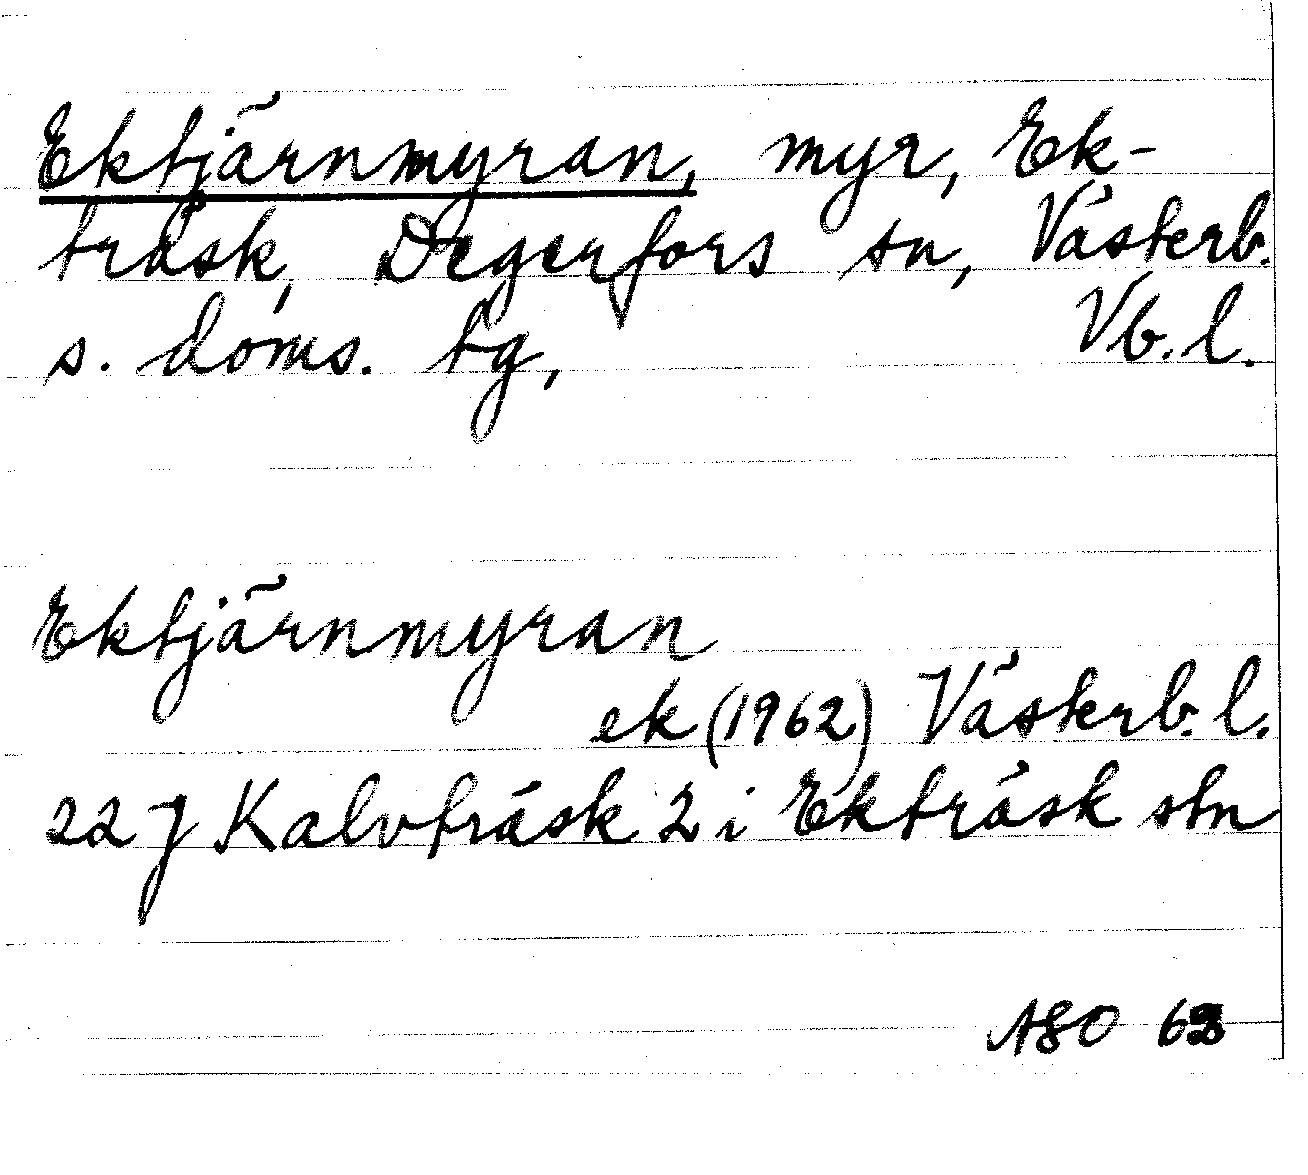 Ektjärnmyran, myr, Ek-
träsk, Degerfors sn, Västerb.
s. doms. tg, Vb. l.
Ektjärnmyran
ek (1962) Västerb. l.
22 J Kalvträsk 2 i Ekträsk stn
ASO